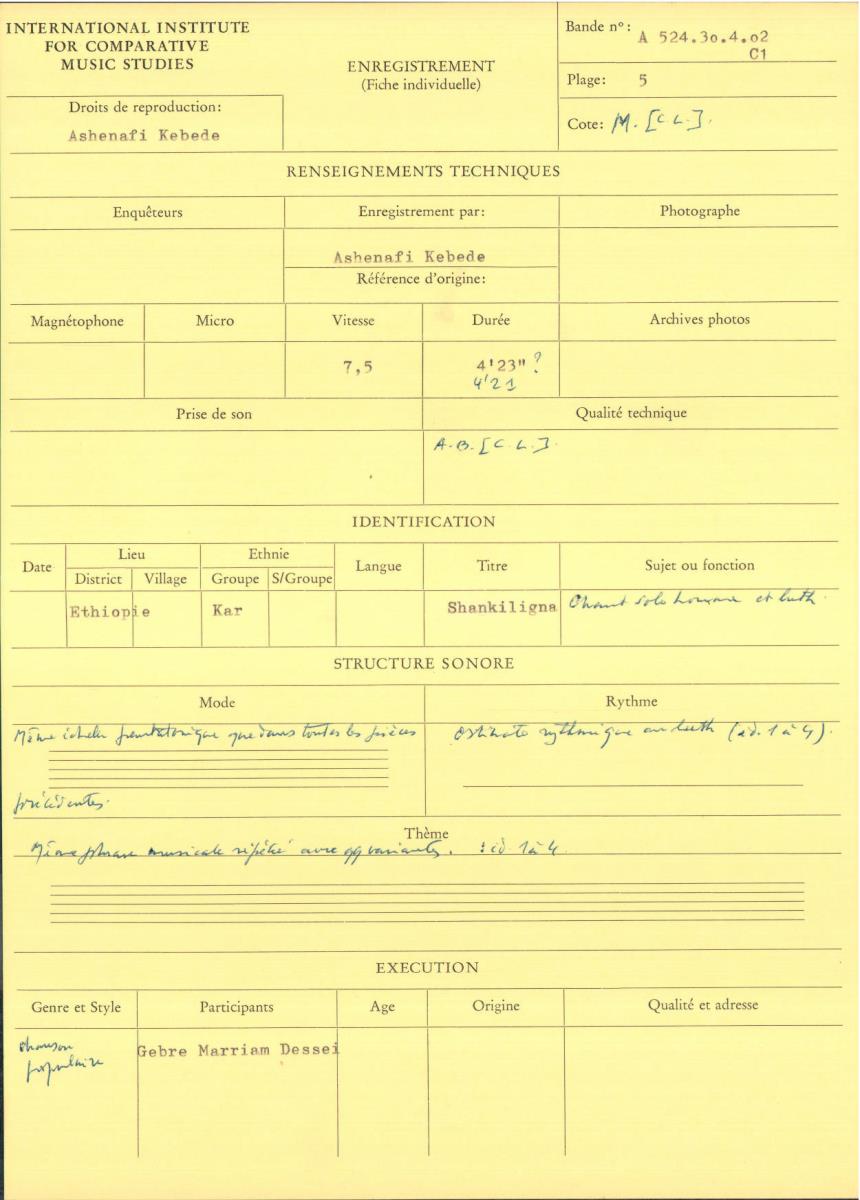 INTERNATIONAL INSTITUTE
FOR COMPARATIVE
MUSIC STUDIES
Droits de reproduction:
Ashenafi Kebede
ENREGISTREMENT
(Fiche individuelle)
Bande nº: A 524.3o.4.o2
C1
Plage: 5
Cote: M. [C.L.].
RENSEIGNEMENTS TECHNIQUES
Enquêteurs
Enregistrement par:
Photographe
Ashenafi Kebede
Référence d'origine:
Magnétophone
Micro
Vitesse
Durée
Archives photos
7,5
4'23" ?
4'21
Prise de son
Qualité technique
A.B. [C.L.].
IDENTIFICATION
Date
Lieu
District
Village
Ethnie
Groupe
S/Groupe
Langue
Titre
Sujet ou fonction
Ethiopie
Kar
Shankiligna
Chant solo homme et luth.
STRUCTURE SONORE
Mode
Rythme
Même échelle pentatonique que dans toutes les pièces
précédentes.
Ostinato rythmique au luth (id. 1 à 4).
Thème
Même phrase musicale répété avec qq variantes. : id. 1 à 4.
EXECUTION
Genre et Style
Participants
Age
Origine
Qualité et adresse
chanson
populaire
Gebre Marriam Dessei